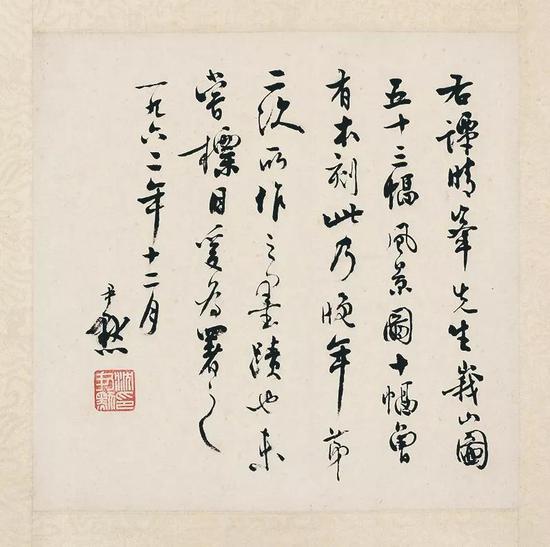 右谭晴峰先生峩山圖
五十三幅風景圖十幅曾
有木刻此乃晚年第
二次所作之墨蹟也未
嘗標目爰為署之
一九六二年十二月
尹默
沈尹默印